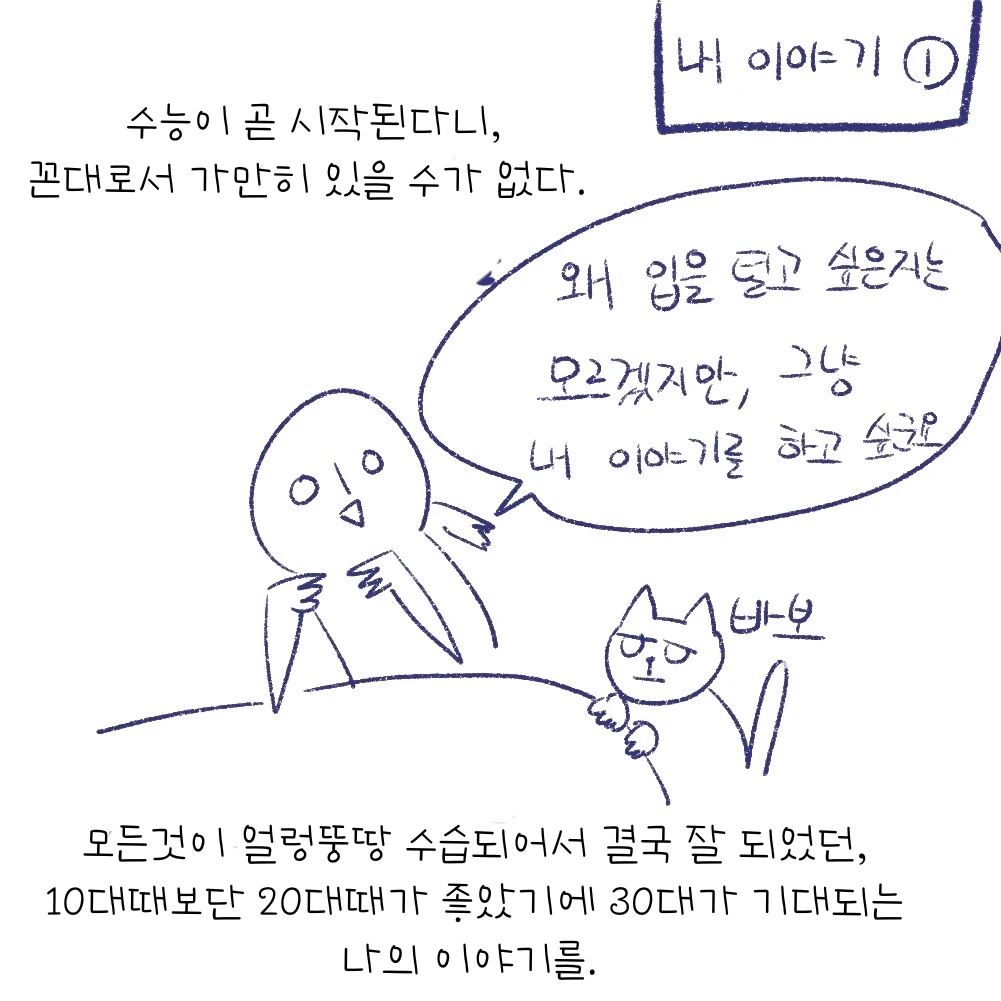 내 이야기 ①
수능이 곧 시작된다니,
꼰대로서 가만히 있을 수가 없다.
왜 입을 털고 싶은지는
모르겠지만, 그냥
내 이야기를 하고 싶군요
바보
모든것이 얼렁뚱땅 수습되어서 결국 잘 되었던,
10대때보단 20대때가 좋았기에 30대가 기대되는
나의 이야기를.